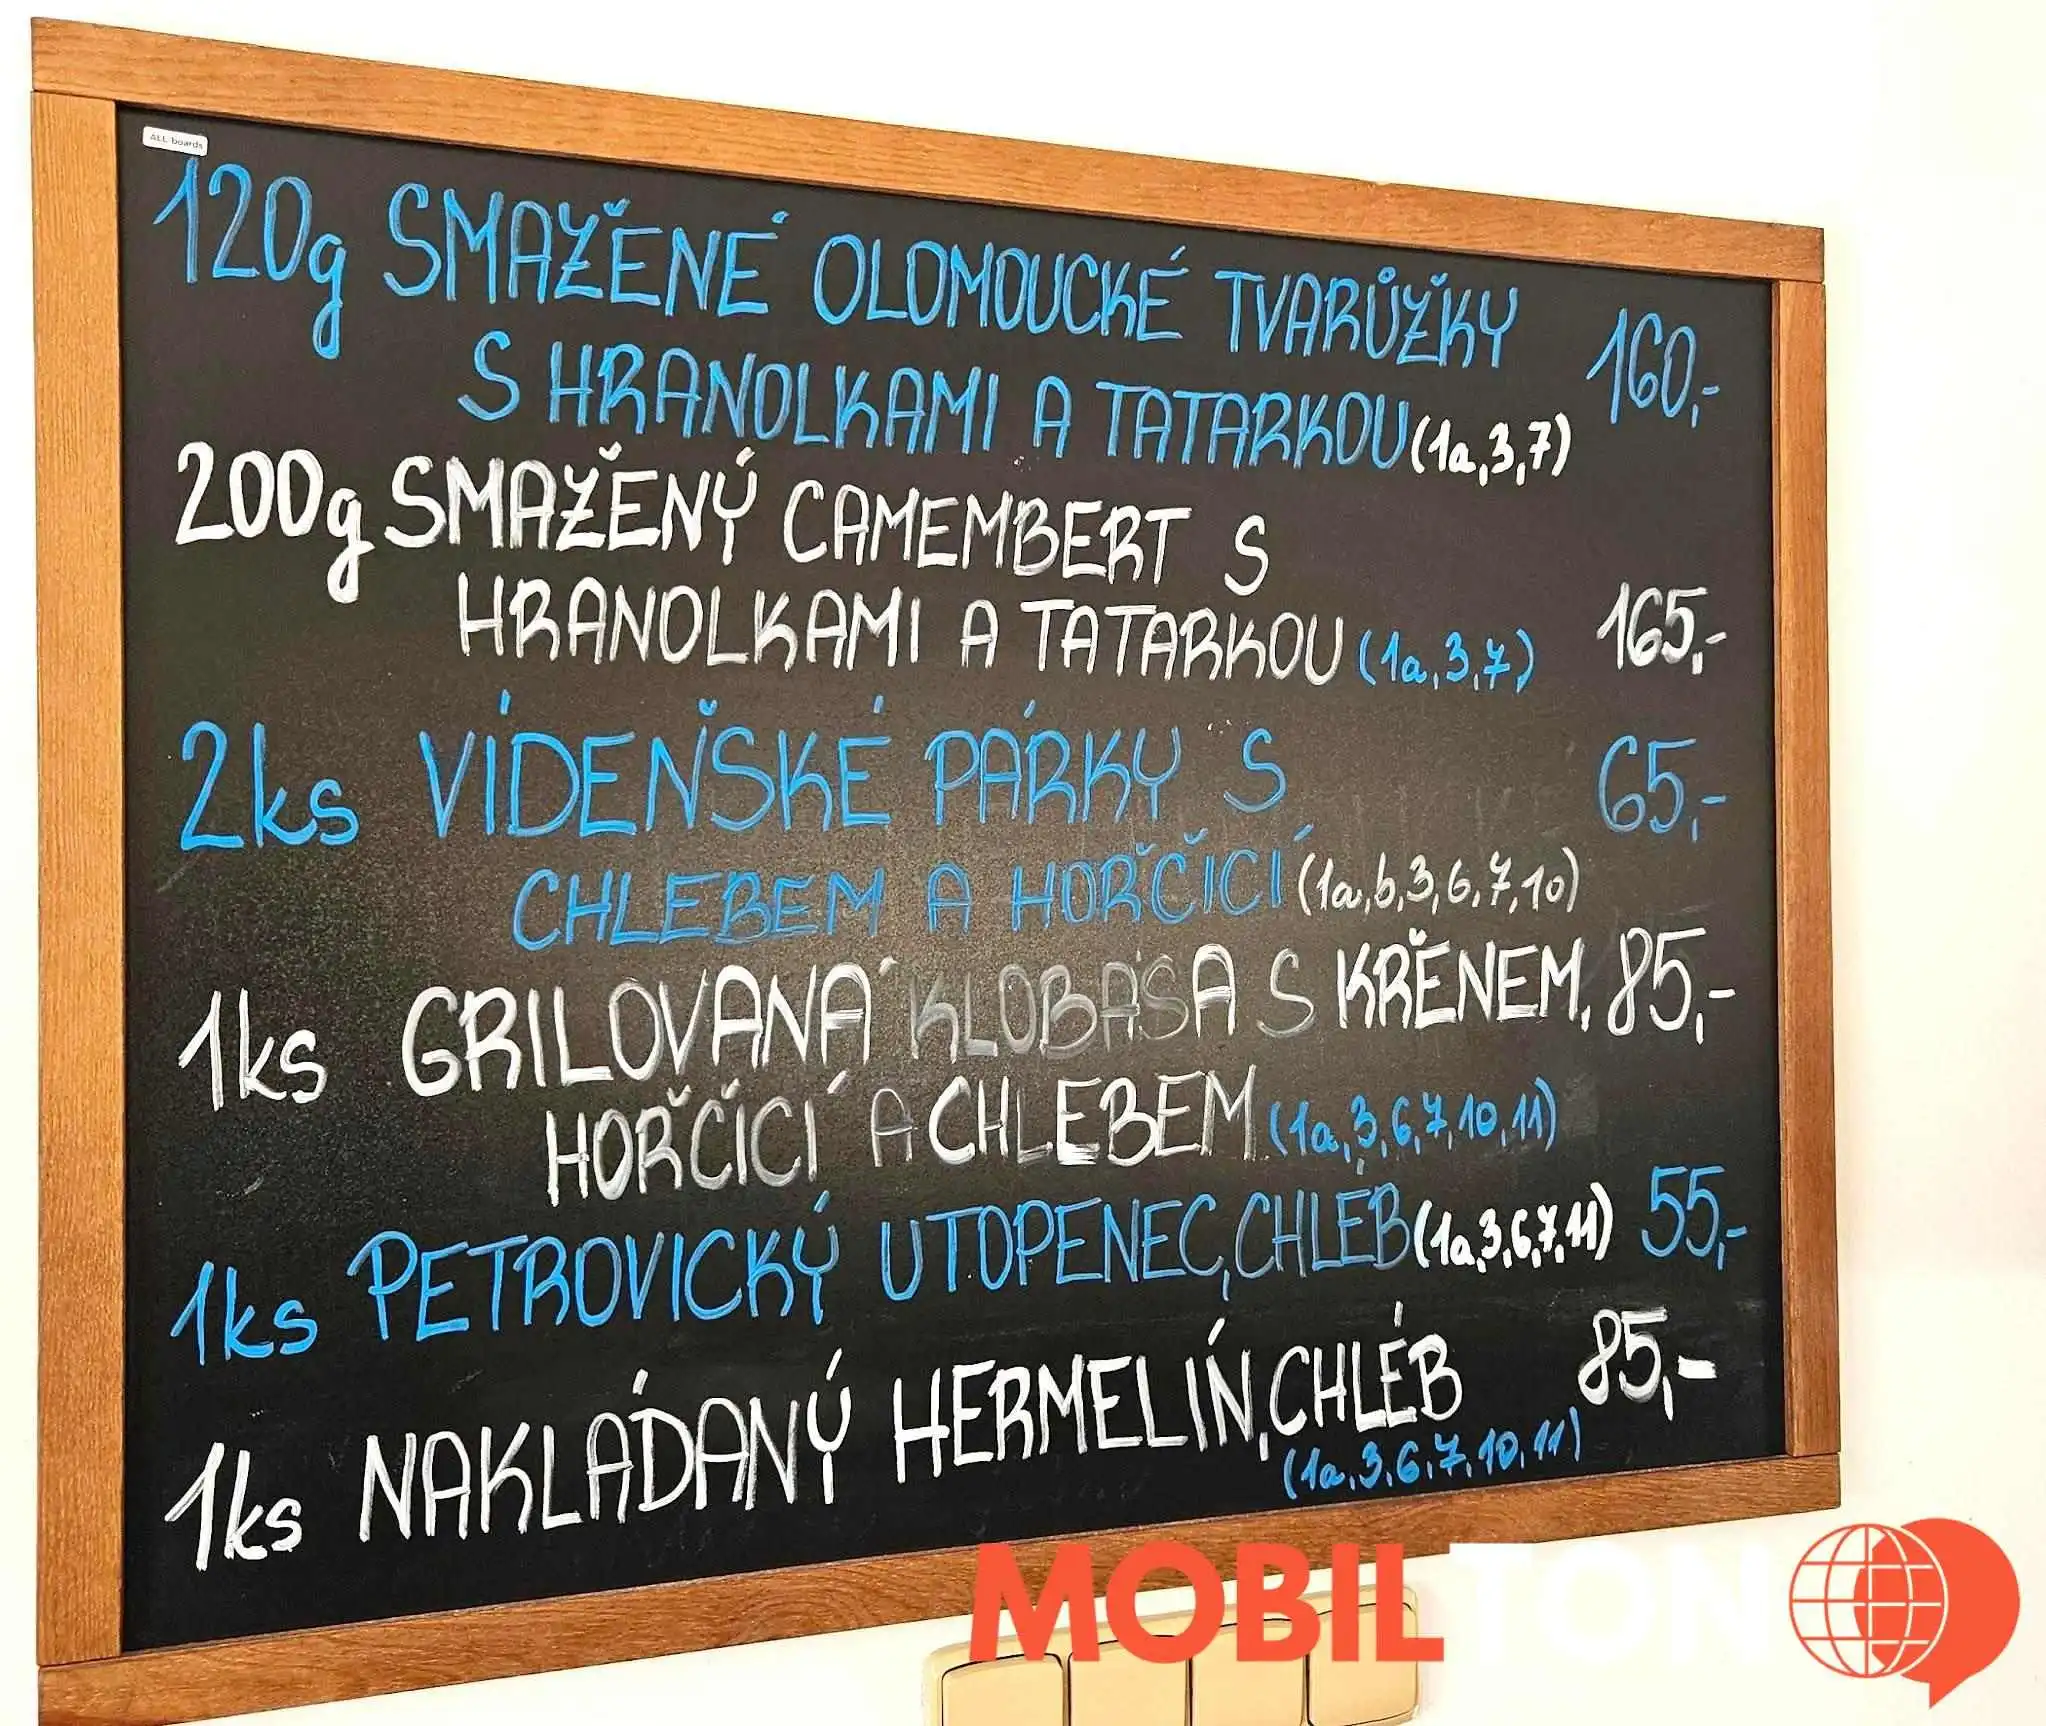 ALL boards
120g SMAŽENÉ OLOMOUCKÉ TVARŮŽKY 160,-
S HRANOLKAMI A TATARKOU (1a,3,7)
200g SMAŽENÝ CAMEMBERT S
HRANOLKAMI A TATARKOU (1a,3,7) 165,-
2ks VÍDEŇSKÉ PÁRKY S 65,-
CHLEBEM A HOŘČICÍ (1a,b,3,6,7,10)
1ks GRILOVANÁ KLOBÁSA S KŘENEM, 85,-
HOŘČICÍ A CHLEBEM (1a,3,6,7,10,11)
1ks PETROVICKÝ UTOPENEC, CHLÉB (1a,3,6,7,11) 55,-
1ks NAKLÁDANÝ HERMELÍN, CHLÉB 85,-
(1a,3,6,7,10,11)
MOBILTON